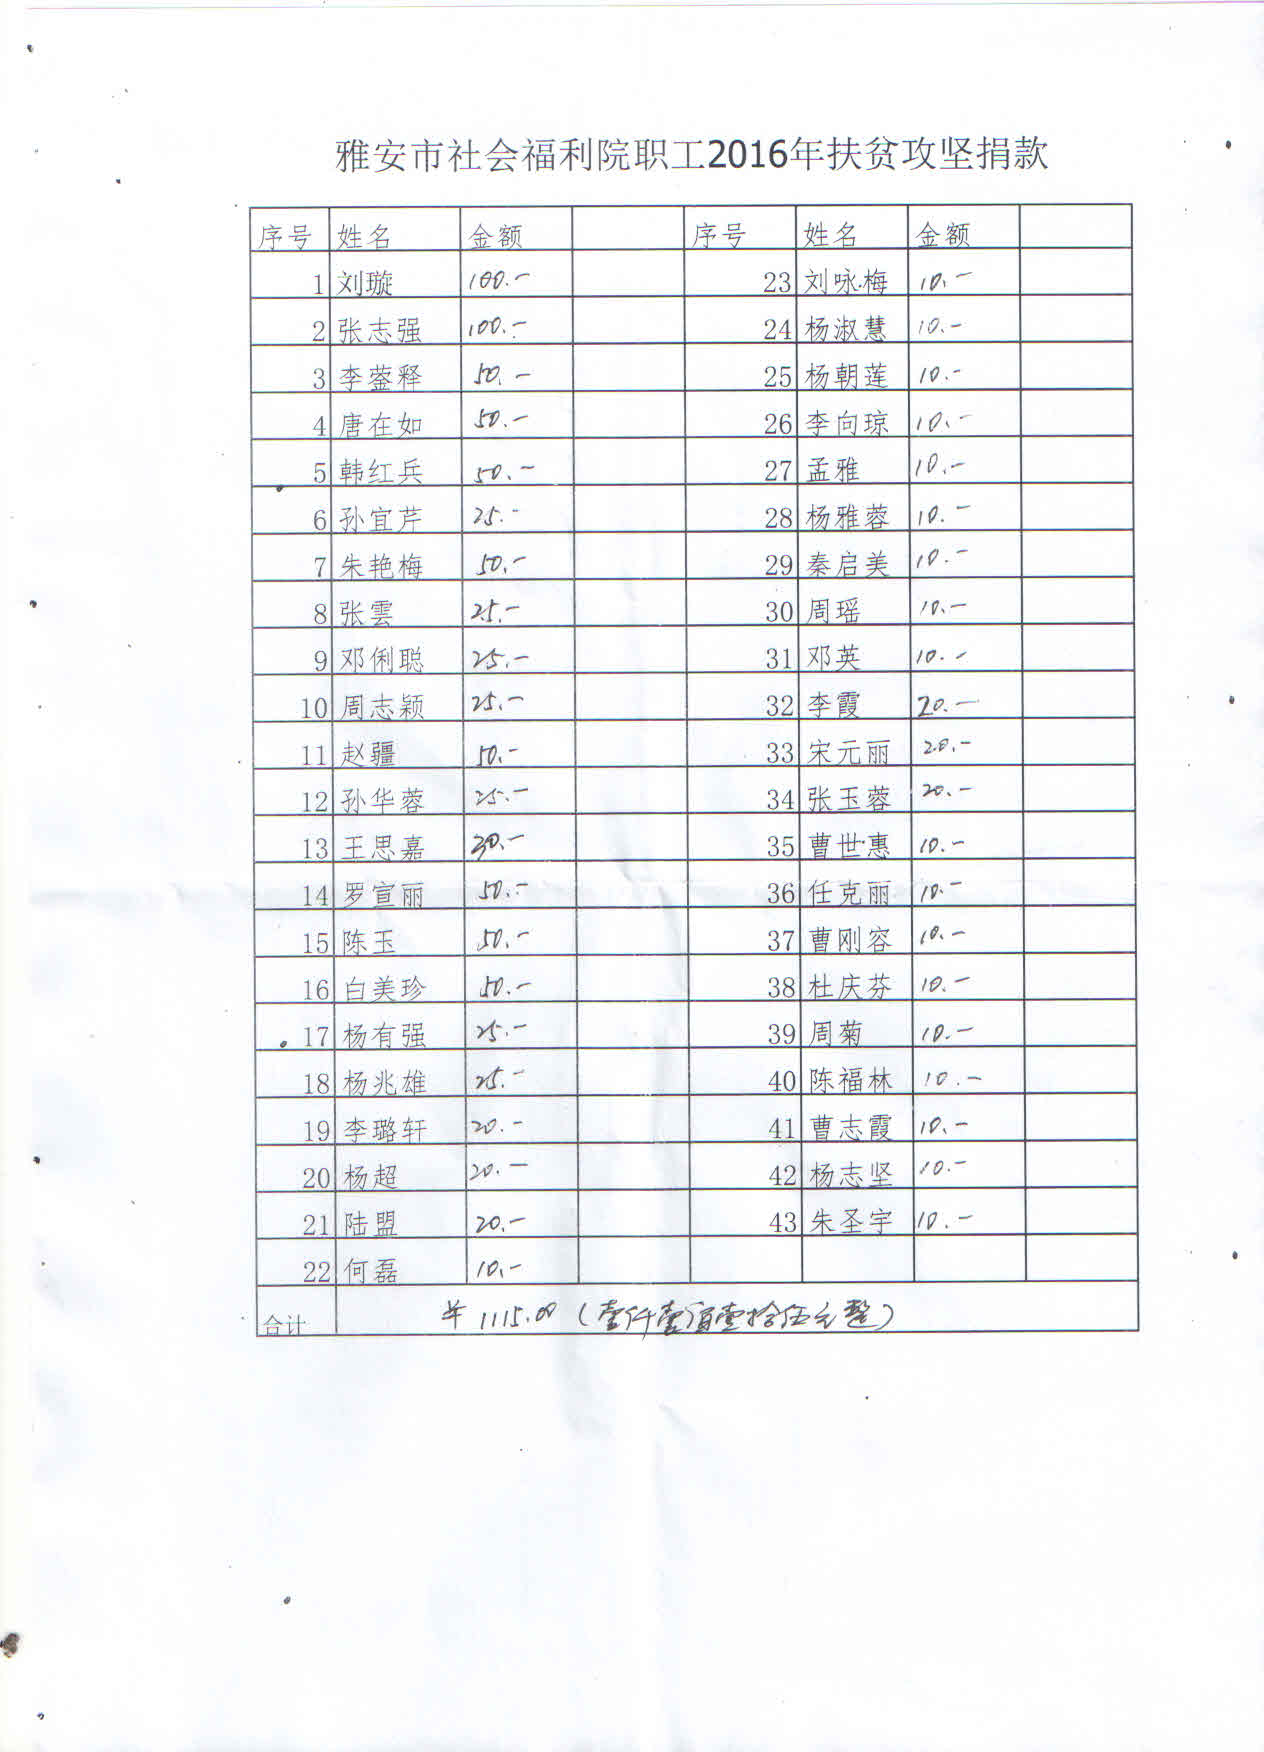 雅安市社会福利院职工2016年扶贫攻坚捐款
序号 姓名 金额 序号 姓名 金额
1 刘璇 100.- 23 刘咏梅 10.-
2 张志强 100.- 24 杨淑慧 10.-
3 李蓥释 50.- 25 杨朝莲 10.-
4 唐在如 50.- 26 李向琼 10.-
5 韩红兵 50.- 27 孟雅 10.-
6 孙宜芹 25.- 28 杨雅蓉 10.-
7 朱艳梅 50.- 29 秦启美 10.-
8 张雲 25.- 30 周瑶 10.-
9 邓俐聪 25.- 31 邓英 10.-
10 周志颖 25.- 32 李霞 20.-
11 赵疆 50.- 33 宋元丽 20.-
12 孙华蓉 25.- 34 张玉蓉 20.-
13 王思嘉 30.- 35 曹世惠 10.-
14 罗宣丽 50.- 36 任克丽 10.-
15 陈玉 50.- 37 曹刚容 10.-
16 白美珍 50.- 38 杜庆芬 10.-
17 杨有强 25.- 39 周菊 10.-
18 杨兆雄 25.- 40 陈福林 10.-
19 李璐轩 20.- 41 曹志霞 10.-
20 杨超 20.- 42 杨志坚 10.-
21 陆盟 20.- 43 朱圣宇 10.-
22 何磊 10.-
合计 ¥1115.00（壹仟壹佰壹拾伍元整）